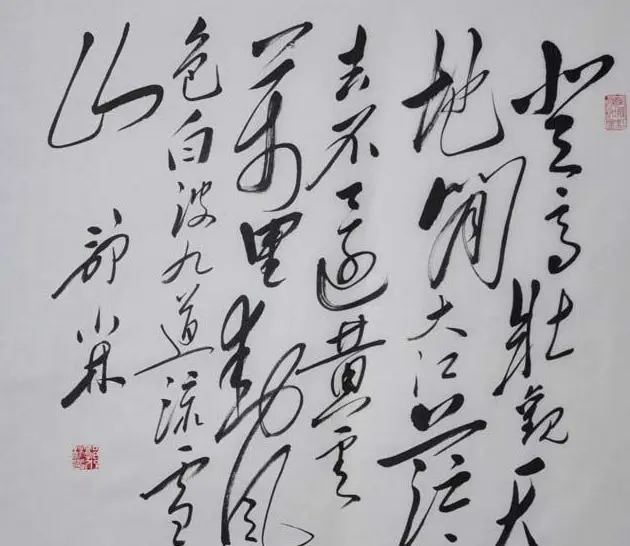 登高壮观天
地间大江茫茫
去不还黄云
万里动风
色白波九道流雪
山
小林